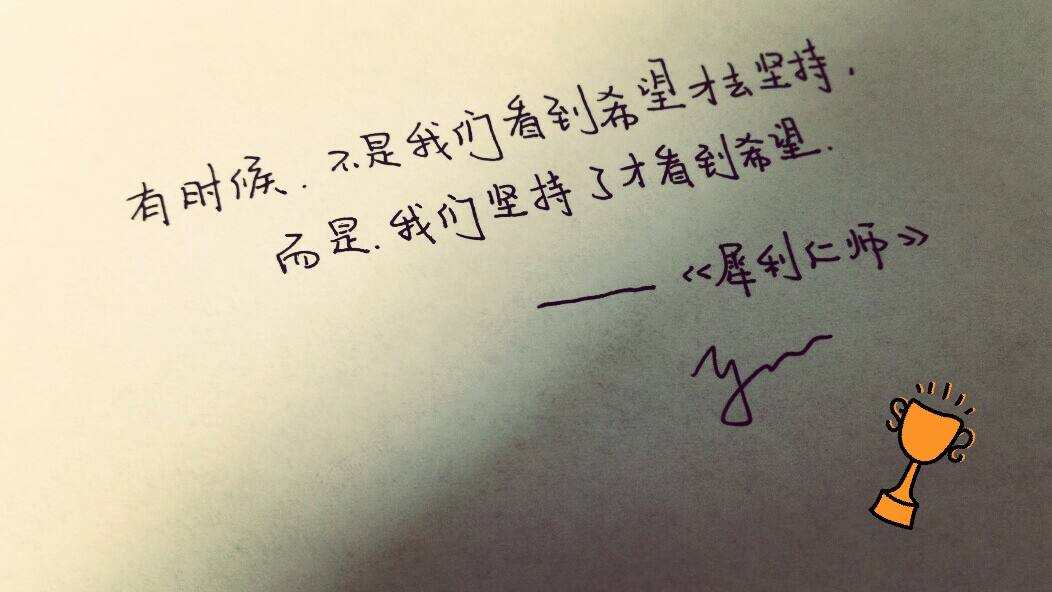 有时候.不是我们看到希望才去坚持.
而是.我们坚持了才看到希望.
——《犀利仁师》